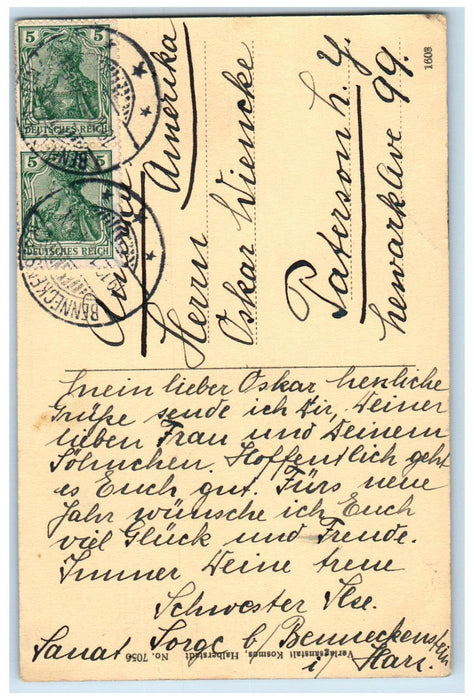 5 5
DEUTSCHES REICH
5 5
DEUTSCHES REICH
BENNECKENS
Amerika
Herrn
Oskar Wiencke
Paterson N. Y.
Newark Ave 99.
1608
Mein lieber Oskar herzliche
Grüße sende ich Dir, Deiner
lieben Frau und Deinem
Söhnchen. Hoffentlich geht
es Euch gut. Fürs neue
Jahr wünsche ich Euch
viel Glück und Freude.
Immer Deine treue
Schwester Ilse.
Sanat Sorge b/Benneckenstein
i/Harz.
Verlagsanstalt Kosmos, Halberstadt No. 7056